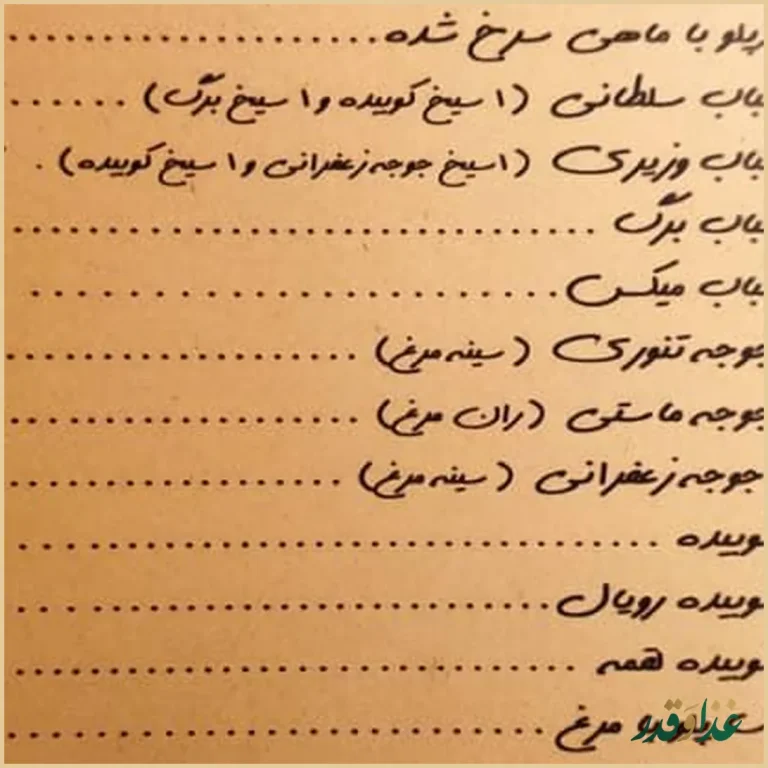 پلو با ماهی سرخ شده
باب سلطانی (۱ سیخ کوبیده و ۱ سیخ برگ)
باب وزیری (۱ سیخ جوجه زعفرانی و ۱ سیخ کوبیده)
باب برگ
باب میکس
جوجه تنوری (سینه مرغ)
جوجه ماستی (ران مرغ)
جوجه زعفرانی (سینه مرغ)
وبیده
وبیده رویال
وبیده همه
مرغ
غذا و قدر